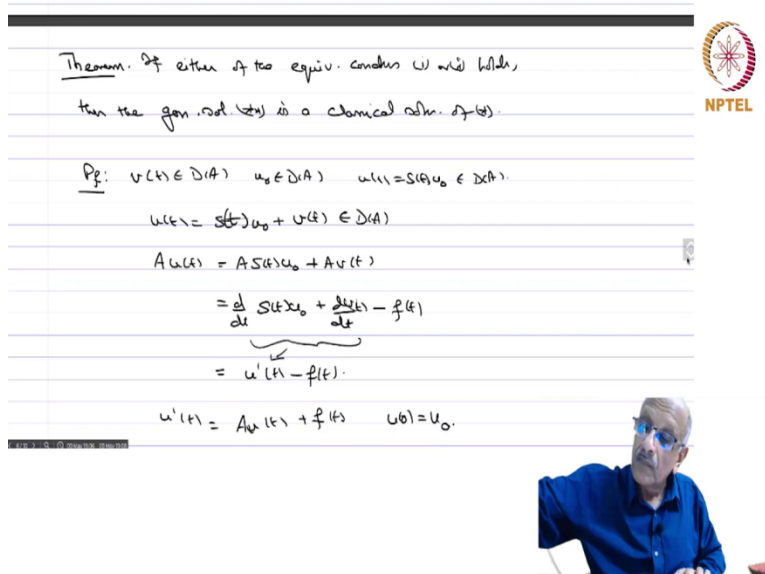 Theorem. If either of the equiv. condns (i) or (ii) holds,
then the gen. sol. (**) is a classical soln. of (*).
NPTEL
Pf: v(t) ∈ D(A) u₀ ∈ D(A) u(t) = S(t)u₀ ∈ D(A).
u(t) = S(t)u₀ + v(t) ∈ D(A)
Au(t) = AS(t)u₀ + Av(t)
= d/dt S(t)u₀ + dv(t)/dt - f(t)
= u'(t) - f(t).
u'(t) = Au(t) + f(t) u(0) = u₀.